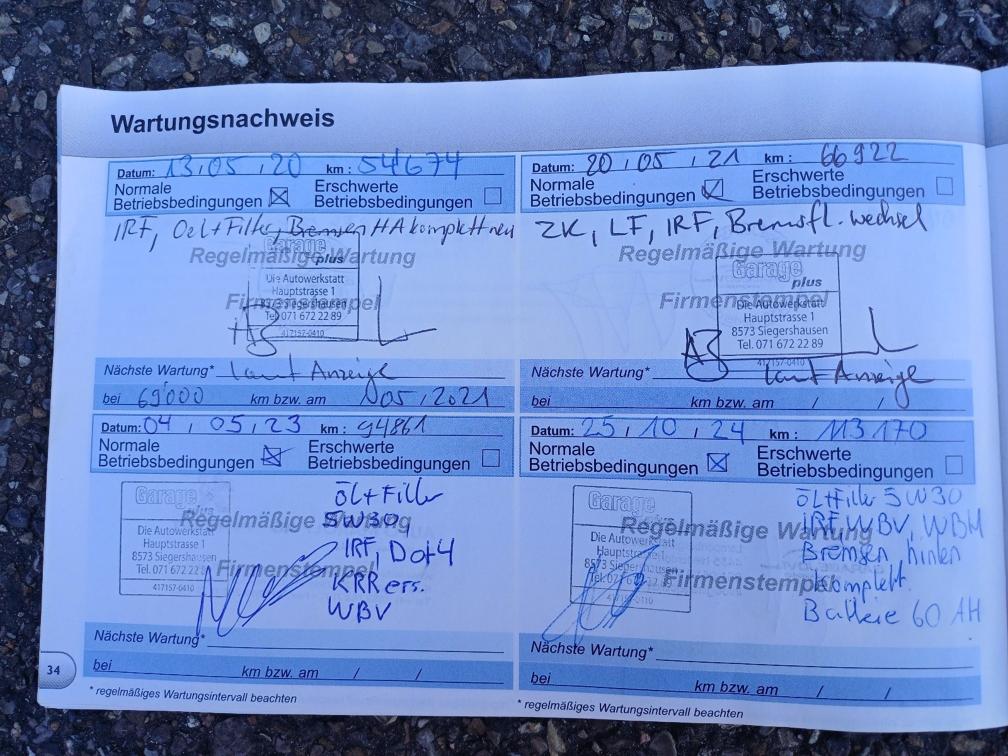 Wartungsnachweis
Datum: 13 , 05 , 20 km : 54674
Normale Betriebsbedingungen ☒ Erschwerte Betriebsbedingungen ☐
IRF, Oel+Filter, Bremsen HA komplett neu
Regelmäßige Wartung
Garage plus
Die Autowerkstatt
Hauptstrasse 1
Firmenstempel
8573 Siegershausen
Tel. 071 672 22 89
417157-0410
Nächste Wartung* laut Anzeige
bei 69'000 km bzw. am 05 / 2021
Datum: 20 , 05 , 21 km : 66922
Normale Betriebsbedingungen ☒ Erschwerte Betriebsbedingungen ☐
ZK, LF, IRF, Bremsfl. wechsel
Regelmäßige Wartung
Garage plus
Firmenstempel
Die Autowerkstatt
Hauptstrasse 1
8573 Siegershausen
Tel. 071 672 22 89
417157-0410
Nächste Wartung* laut Anzeige
bei km bzw. am / /
Datum: 04 , 05 , 23 km : 94861
Normale Betriebsbedingungen ☒ Erschwerte Betriebsbedingungen ☐
Garage plus
öl+Filter
5W30
Regelmäßige Wartung
Die Autowerkstatt
Hauptstrasse 1
8573 Siegershausen
Tel. 071 672 22 89
417157-0410
IRF, Dot4
Firmenstempel
KRR ers.
WBV
Nächste Wartung*
bei km bzw. am / /
* regelmäßiges Wartungsintervall beachten
Datum: 25 , 10 , 24 km : 113170
Normale Betriebsbedingungen ☒ Erschwerte Betriebsbedingungen ☐
Garage plus
öl+Filter 5W30
Regelmäßige Wartung
IRF, WBV, WBH
Die Autowerkstatt
Hauptstrasse 1
8573 Siegershausen
Tel. 071 672 22 89
Bremsen hinten
Firmenstempel
Komplett.
Batterie 60 AH
Nächste Wartung*
bei km bzw. am / /
* regelmäßiges Wartungsintervall beachten
34